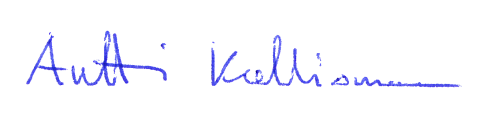 Antti Kalliomaa